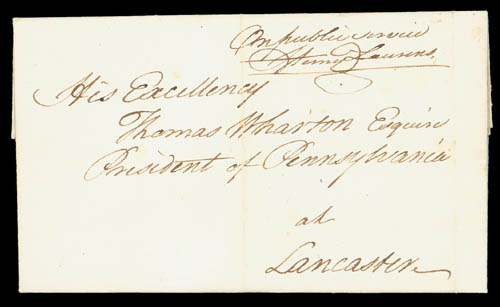 On public service
Henry Laurens.
His Excellency
Thomas Wharton Esquire
President of Pennsylvania
at
Lancaster